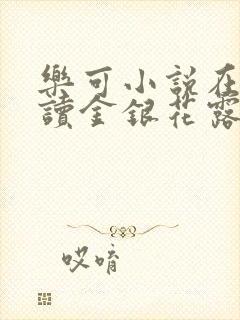 樂可小說在
讀金銀花露
哎唷